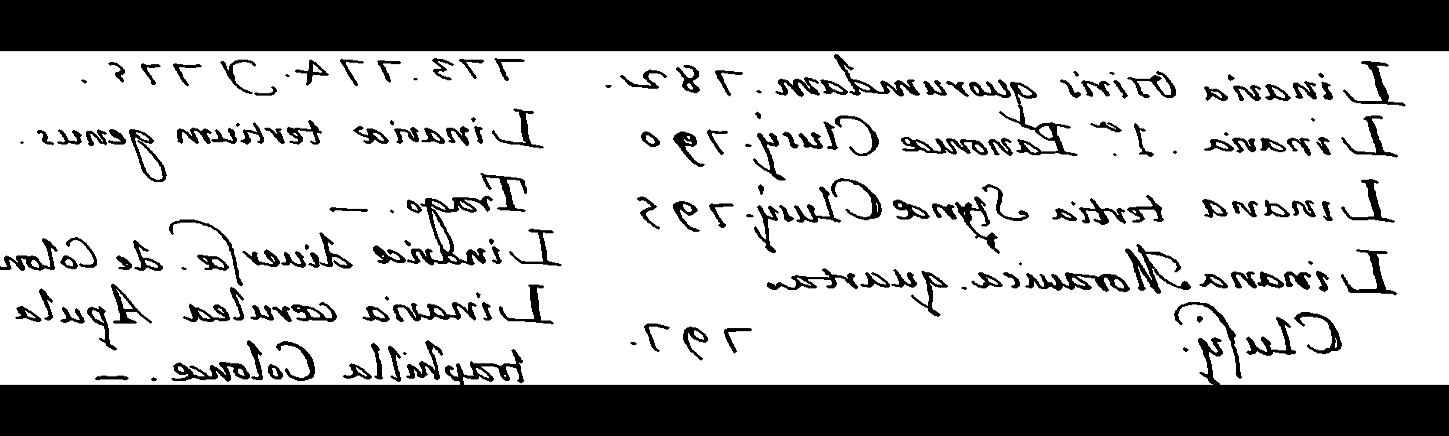 Linaria Osiris quorumdam. 782.
Linaria. 1.ª Panoniæ Clusij. 790
Linaria tertia Styriæ Clusij. 795
Linaria Morauica. quarta
Clusij. 797.
773. 774. Y 775.
Linariæ tertium genus.
Trago. —
Linariæ diuersæ. de Colon
Linaria cærulea Apula
Colonæ. —